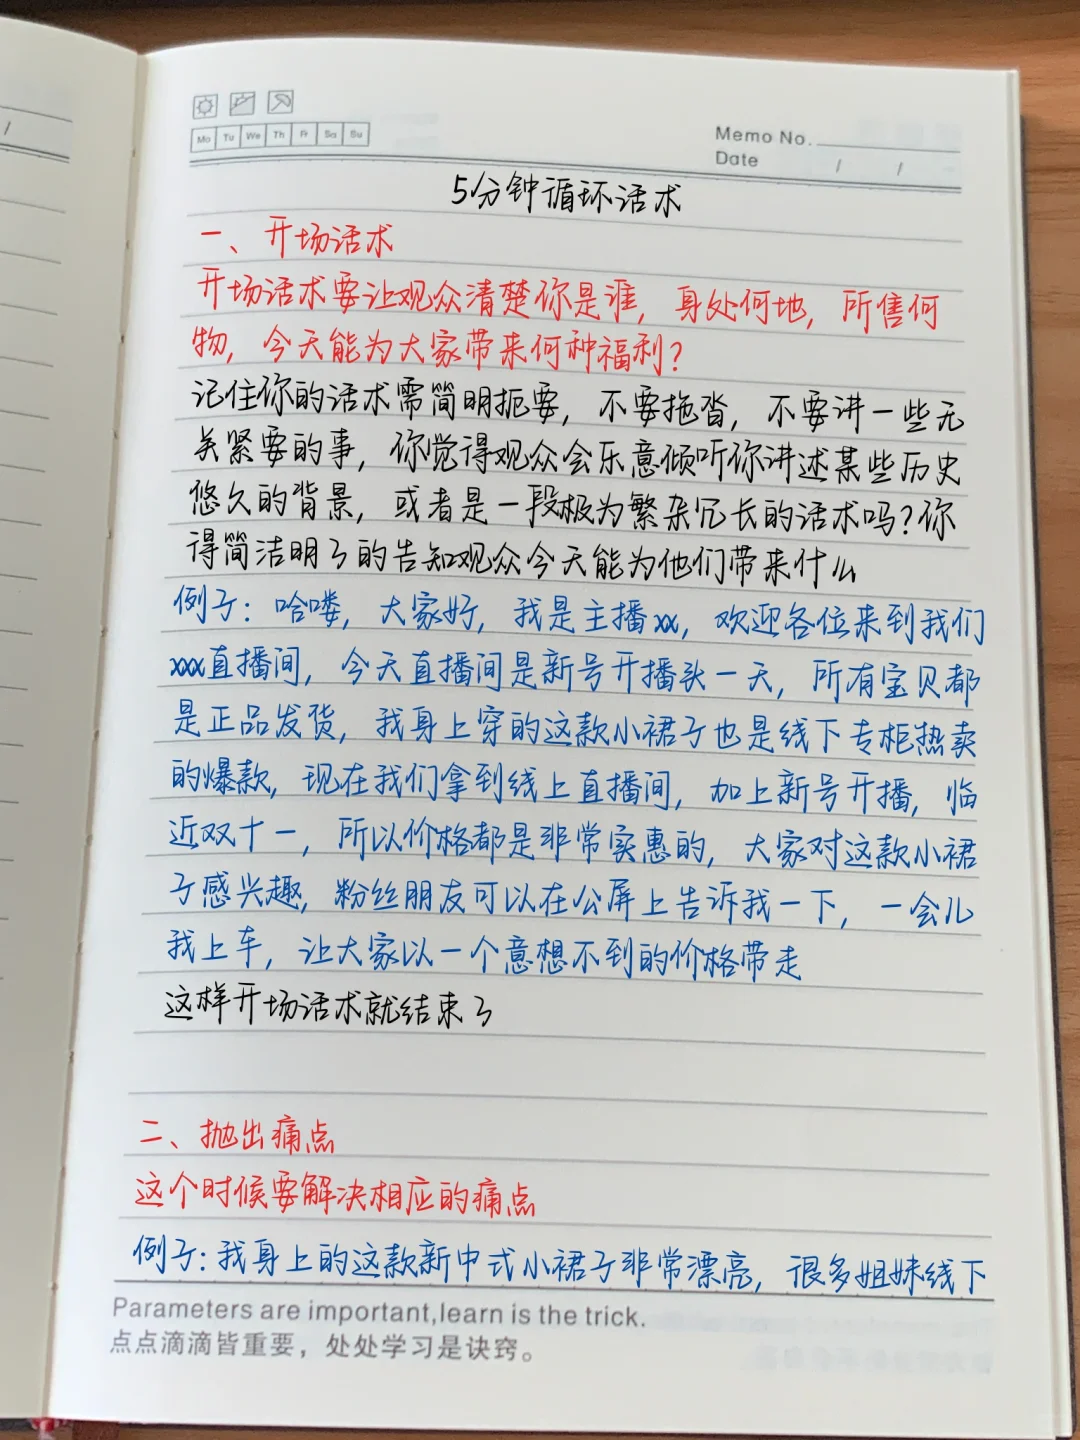 Mo Tu We Th Fr Sa Su
Memo No.
Date / /
5分钟循环话术
一、开场话术
开场话术要让观众清楚你是谁，身处何地，所售何
物，今天能为大家带来何种福利?
记住你的话术需简明扼要，不要拖沓，不要讲一些无
关紧要的事，你觉得观众会乐意倾听你讲述某些历史
悠久的背景，或者是一段极为繁杂冗长的话术吗?你
得简洁明了的告知观众今天能为他们带来什么
例子：哈喽，大家好，我是主播xx，欢迎各位来到我们
xxx直播间，今天直播间是新号开播头一天，所有宝贝都
是正品发货，我身上穿的这款小裙子也是线下专柜热卖
的爆款，现在我们拿到线上直播间，加上新号开播，临
近双十一，所以价格都是非常实惠的，大家对这款小裙
子感兴趣，粉丝朋友可以在公屏上告诉我一下，一会儿
我上车，让大家以一个意想不到的价格带走
这样开场话术就结束了
二、抛出痛点
这个时候要解决相应的痛点
例子：我身上的这款新中式小裙子非常漂亮，很多姐妹线下
Parameters are important,learn is the trick.
点点滴滴皆重要，处处学习是诀窍。